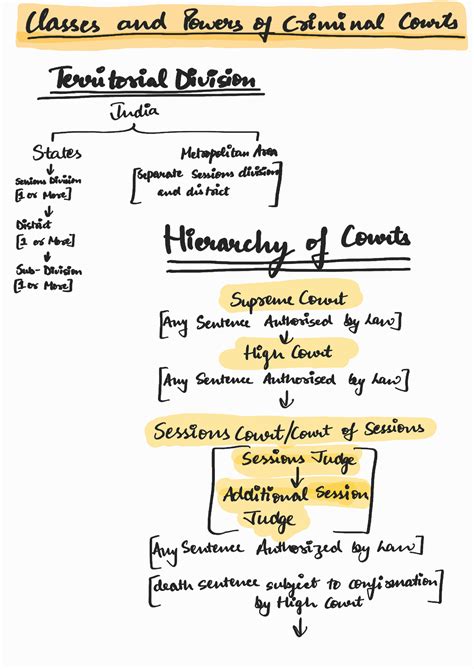 Classes and Powers of Criminal Courts
Territorial Division
India
States
Sessions Division
[1 or More]
District
[1 or More]
Sub-Division
[1 or More]
Metropolitan Area
[Separate Sessions division
and district]
Hierarchy of Courts
Supreme Court
[Any Sentence Authorised by Law]
High Court
[Any Sentence Authorised by Law]
Sessions Court/Court of Sessions
[Sessions Judge
Additional Session
Judge]
[Any Sentence Authorized by Law]
[death sentence subject to confirmation
by High Court]